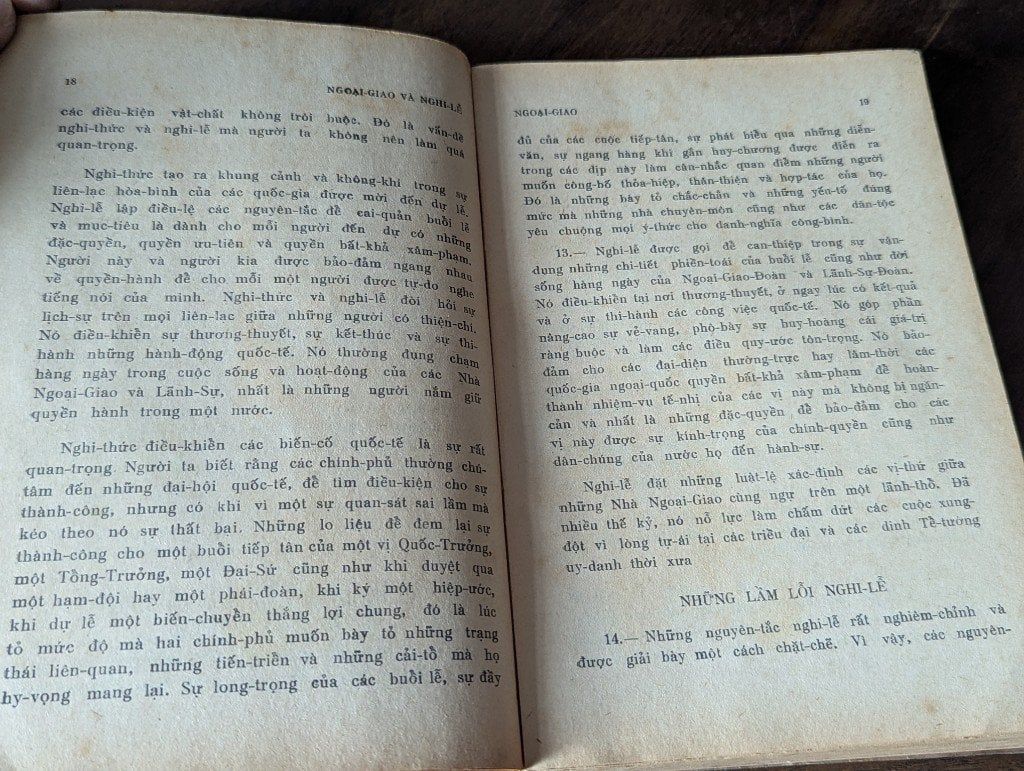 18
NGOẠI-GIAO VÀ NGHI-LỄ
các điều-kiện vật-chất không trói buộc. Đó là vấn-đề
nghi-thức và nghi-lễ mà người ta không nên làm quá
quan-trọng.
Nghi-thức tạo ra khung cảnh và không-khí trong sự
liên-lạc hòa-bình của các quốc-gia được mời đến dự lễ.
Nghi-lễ lập điều-lệ các nguyên-tắc để cai-quản buổi lễ
và mục-tiêu là dành cho mỗi người đến dự có những
đặc-quyền, quyền ưu-tiên và quyền bất-khả xâm-phạm.
Người này và người kia được bảo-đảm ngang nhau
về quyền-hành để cho mỗi một người được tự-do nghe
tiếng nói của mình. Nghi-thức và nghi-lễ đòi hỏi sự
lịch-sự trên mọi liên-lạc giữa những người có thiện-chí.
Nó điều-khiển sự thương-thuyết, sự kết-thúc và sự thi-
hành những hành-động quốc-tế. Nó thường đụng chạm
hàng ngày trong cuộc sống và hoạt-động của các Nhà
Ngoại-Giao và Lãnh-Sự, nhất là những người nắm giữ
quyền hành trong một nước.
Nghi-thức điều-khiển các biến-cố quốc-tế là sự rất
quan-trọng. Người ta biết rằng các chính-phủ thường chú-
tâm đến những đại-hội quốc-tế, để tìm điều-kiện cho sự
thành-công, nhưng có khi vì một sự quan-sát sai lầm mà
kéo theo nó sự thất bại. Những lo liệu để đem lại sự
thành-công cho một buổi tiếp tân của một vị Quốc-Trưởng,
một Tổng-Trưởng, một Đại-Sứ cũng như khi duyệt qua
một hạm-đội hay một phái-đoàn, khi ký một hiệp-ước,
khi dự lễ một biến-chuyển thắng lợi chung, đó là lúc
tỏ mức độ mà hai chính-phủ muốn bày tỏ những trạng
thái liên-quan, những tiến-triển và những cải-tổ mà họ
hy-vọng mang lại. Sự long-trọng của các buổi lễ, sự đầy
NGOẠI-GIAO
19
đủ của các cuộc tiếp-tân, sự phát biểu qua những diễn-
văn, sự ngang hàng khi gắn huy-chương được diễn ra
trong các dịp này làm cân-nhắc quan điểm những người
muốn công-bố thỏa-hiệp, thân-thiện và hợp-tác của họ.
Đó là những bày tỏ chắc-chắn và những yếu-tố đúng
mức mà những nhà chuyên-môn cũng như các dân-tộc
yêu chuộng mọi ý-thức cho danh-nghĩa công-bình.
13.— Nghi-lễ được gọi để can-thiệp trong sự vận-
dụng những chi-tiết phiền-toái của buổi lễ cũng như đời
sống hàng ngày của Ngoại-Giao-Đoàn và Lãnh-Sự-Đoàn.
Nó điều-khiển tại nơi thương-thuyết, ở ngay lúc có kết-quả
và ở sự thi-hành các công việc quốc-tế. Nó góp phần
nâng-cao sự vẻ-vang, phô-bày sự huy-hoàng cái giá-trị
ràng buộc và làm các điều quy-ước tôn-trọng. Nó bảo-
đảm cho các đại-diện thường-trực hay lâm-thời các
quốc-gia ngoại-quốc quyền bất-khả xâm-phạm để hoàn-
thành nhiệm-vụ tế-nhị của các vị này mà không bị ngăn-
cản và nhất là những đặc-quyền để bảo-đảm cho các
vị này được sự kính-trọng của chính-quyền cũng như
dân-chúng của nước họ đến hành-sự.
Nghi-lễ đặt những luật-lệ xác-định các vị-thứ giữa
những Nhà Ngoại-Giao cùng ngự trên một lãnh-thổ. Đã
nhiều thế kỷ, nó nỗ lực làm chấm dứt các cuộc xung-
đột vì lòng tự-ái tại các triều đại và các dinh Tề-tướng
uy-danh thời xưa
NHỮNG LẦM LỖI NGHI-LỄ
14.— Những nguyên-tắc nghi-lễ rất nghiêm-chỉnh và
được giải bày một cách chặt-chẽ. Vì vậy, các nguyên-